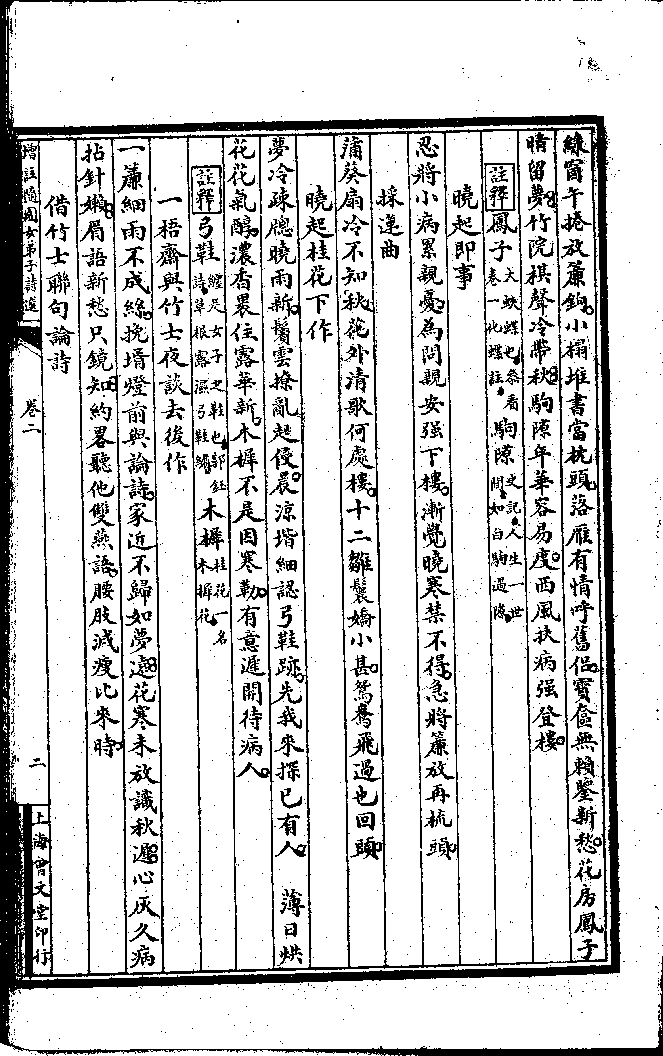 綠窗午捲放簾鉤小榻堆書當枕頭落雁有情呼舊侶寶奩無賴鑒新愁花房鳳子
晴留夢竹院棋聲冷帶秋駒隙年華容易度西風扶病强登樓
註釋 鳳子大蛺蝶也參看卷一化蝶註駒隙史記人生一世間如白駒過隙
曉起即事
忍將小病累親憂為問親安强下樓漸覺曉寒禁不得急將簾放再梳頭
採蓮曲
蒲葵扇冷不知秋花外清歌何處樓十二雛鬟嬌小甚鴛鴦飛過也回頭
曉起桂花下作
夢冷疎牕曉雨新鬢雲撩亂起侵晨涼堦細認弓鞋跡先我來探已有人 薄日烘
花花氣醇濃香畏住露華新木樨不是因寒勒有意遲開待病人
註釋 弓鞋纏足女子之鞋也郭鈺詩草根露濕弓鞋繡木樨桂花一名木樨花
一梧齋與竹士夜談去後作
一簾細雨不成絲挽壻燈前與論詩家近不歸如夢遠花寒未放識秋遲心灰久病
拈針嬾眉語新愁只鏡知約畧聽他雙燕語腰肢減瘦比來時
偕竹士聯句論詩
增註隨園女弟子詩選
卷二
二
上海會文堂印行